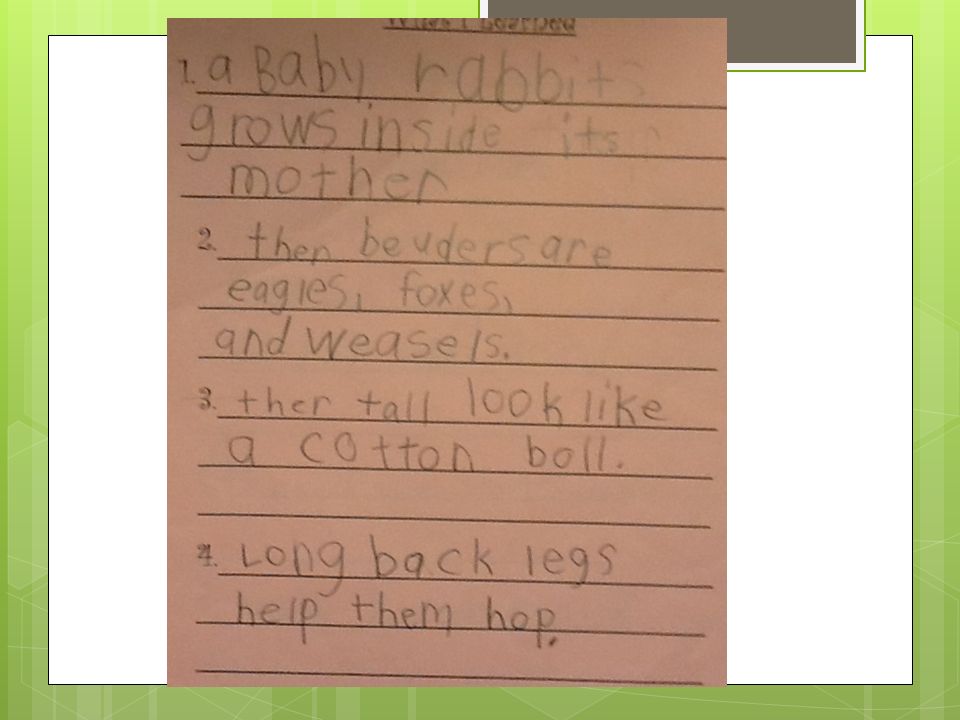 What I Learned
1. a Baby rabbits
grows inside its
mother
2. then beuders are
eagles, foxes,
and weasels.
3. ther tall look like
a cotton boll.
4. Long back legs
help them hop.